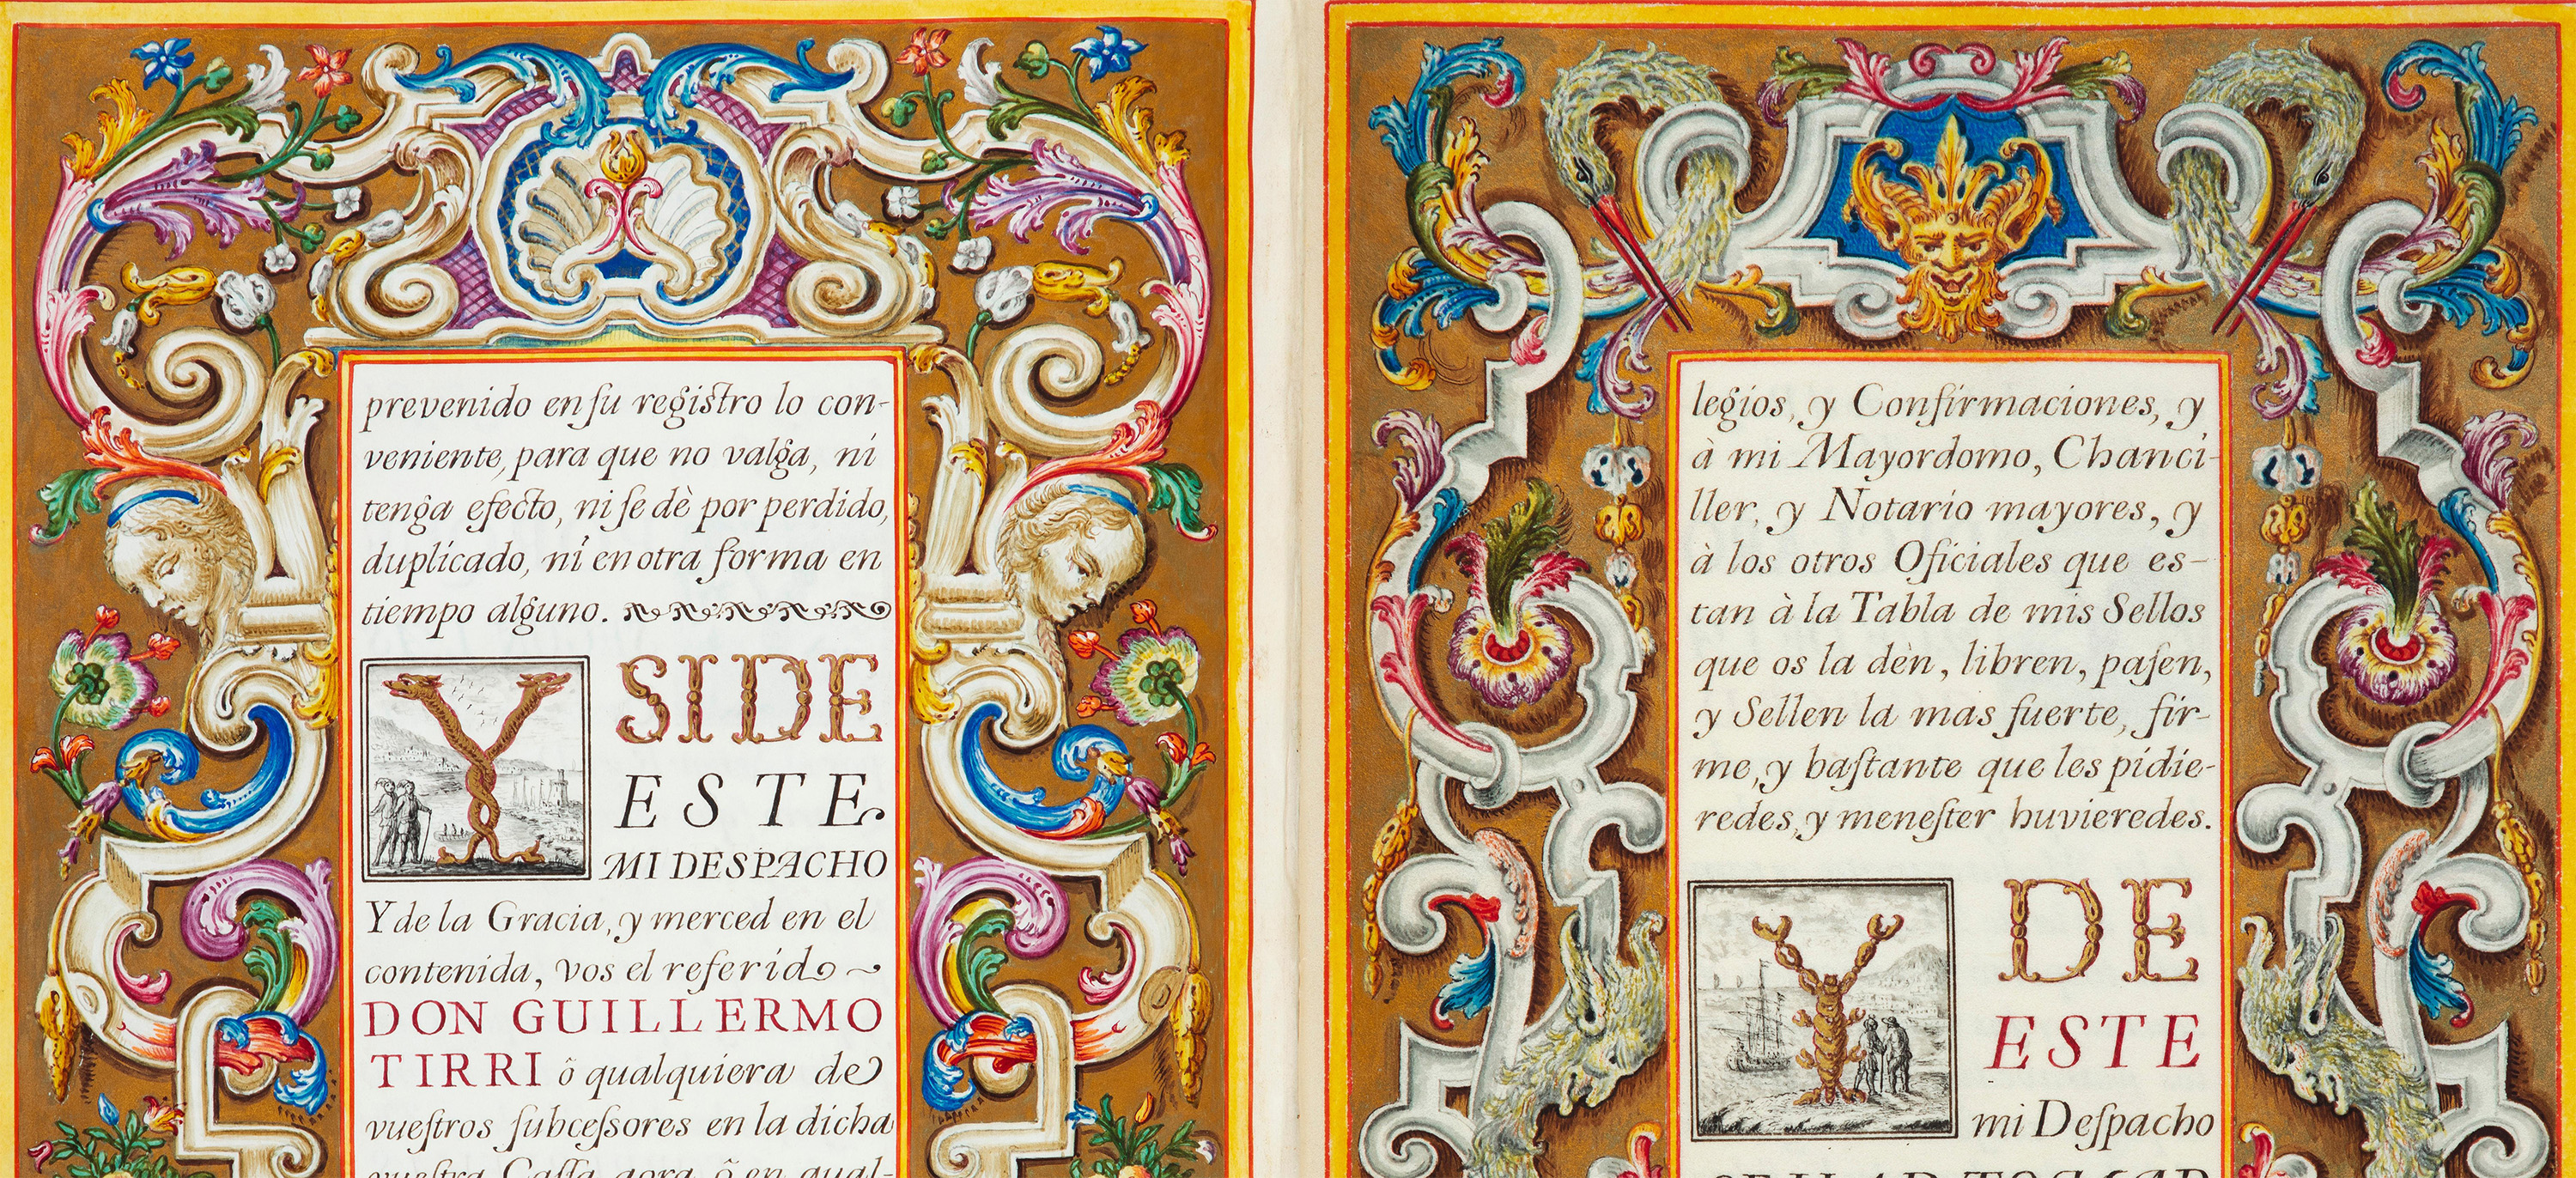 prevenido en ſu registro lo con-
veniente, para que no valga, ni
tenga efecto, ni ſe dè por perdido,
duplicado, ni en otra forma en
tiempo alguno.
Y SI DE
ESTE
MI DESPACHO
Y de la Gracia, y merced en el
contenida, vos el referido
DON GUILLERMO
TIRRI ò qualquiera de
vueſtros ſubceſsores en la dicha
vueſtra Caſſa aora ò en qual-
legios, y Confirmaciones, y
à mi Mayordomo, Chanci-
ller, y Notario mayores, y
à los otros Oficiales que es-
tan à la Tabla de mis Sellos
que os la dèn, libren, paſen,
y Sellen la mas fuerte, fir-
me, y baſtante que les pidie-
redes, y meneſter huvieredes.
Y DE
ESTE
mi Deſpacho